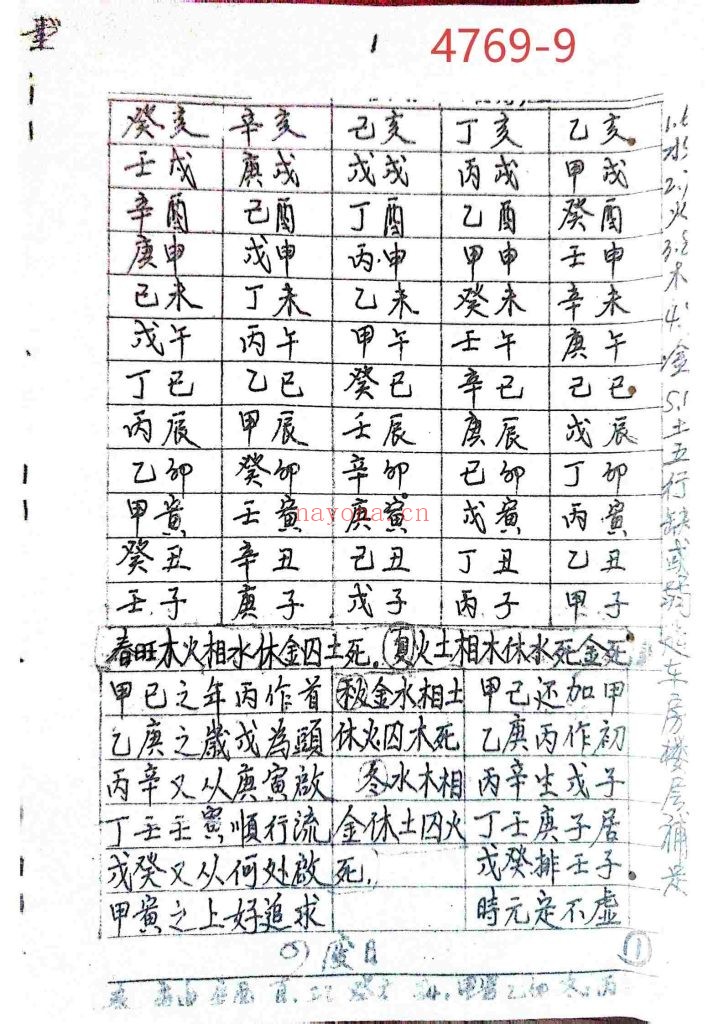 1
4769-9
癸亥 辛亥 己亥 丁亥 乙亥
壬戌 庚戌 戊戌 丙戌 甲戌
辛酉 己酉 丁酉 乙酉 癸酉
庚申 戊申 丙申 甲申 壬申
己未 丁未 乙未 癸未 辛未
戊午 丙午 甲午 壬午 庚午
丁巳 乙巳 癸巳 辛巳 己巳
丙辰 甲辰 壬辰 庚辰 戊辰
乙卯 癸卯 辛卯 己卯 丁卯
甲寅 壬寅 庚寅 戊寅 丙寅
nayona.cn
癸丑 辛丑 己丑 丁丑 乙丑
壬子 庚子 戊子 丙子 甲子
春旺木火相水休金囚土死.夏火土相木休水死金死
甲己之年丙作首
乙庚之歲戊為頭
丙辛又从庚寅啟
丁壬壬寅順行流
戊癸又从何处啟
甲寅之上好追求
秋金水相土
休火囚木死
冬水木相
金休土囚火
死.
甲己还加甲
乙庚丙作初
丙辛生戊子
丁壬庚子居
戊癸排壬子
時元定不虚
①
水 2. 火 3. 木 4. 金 5. 土五行缺或 车房楼层補是